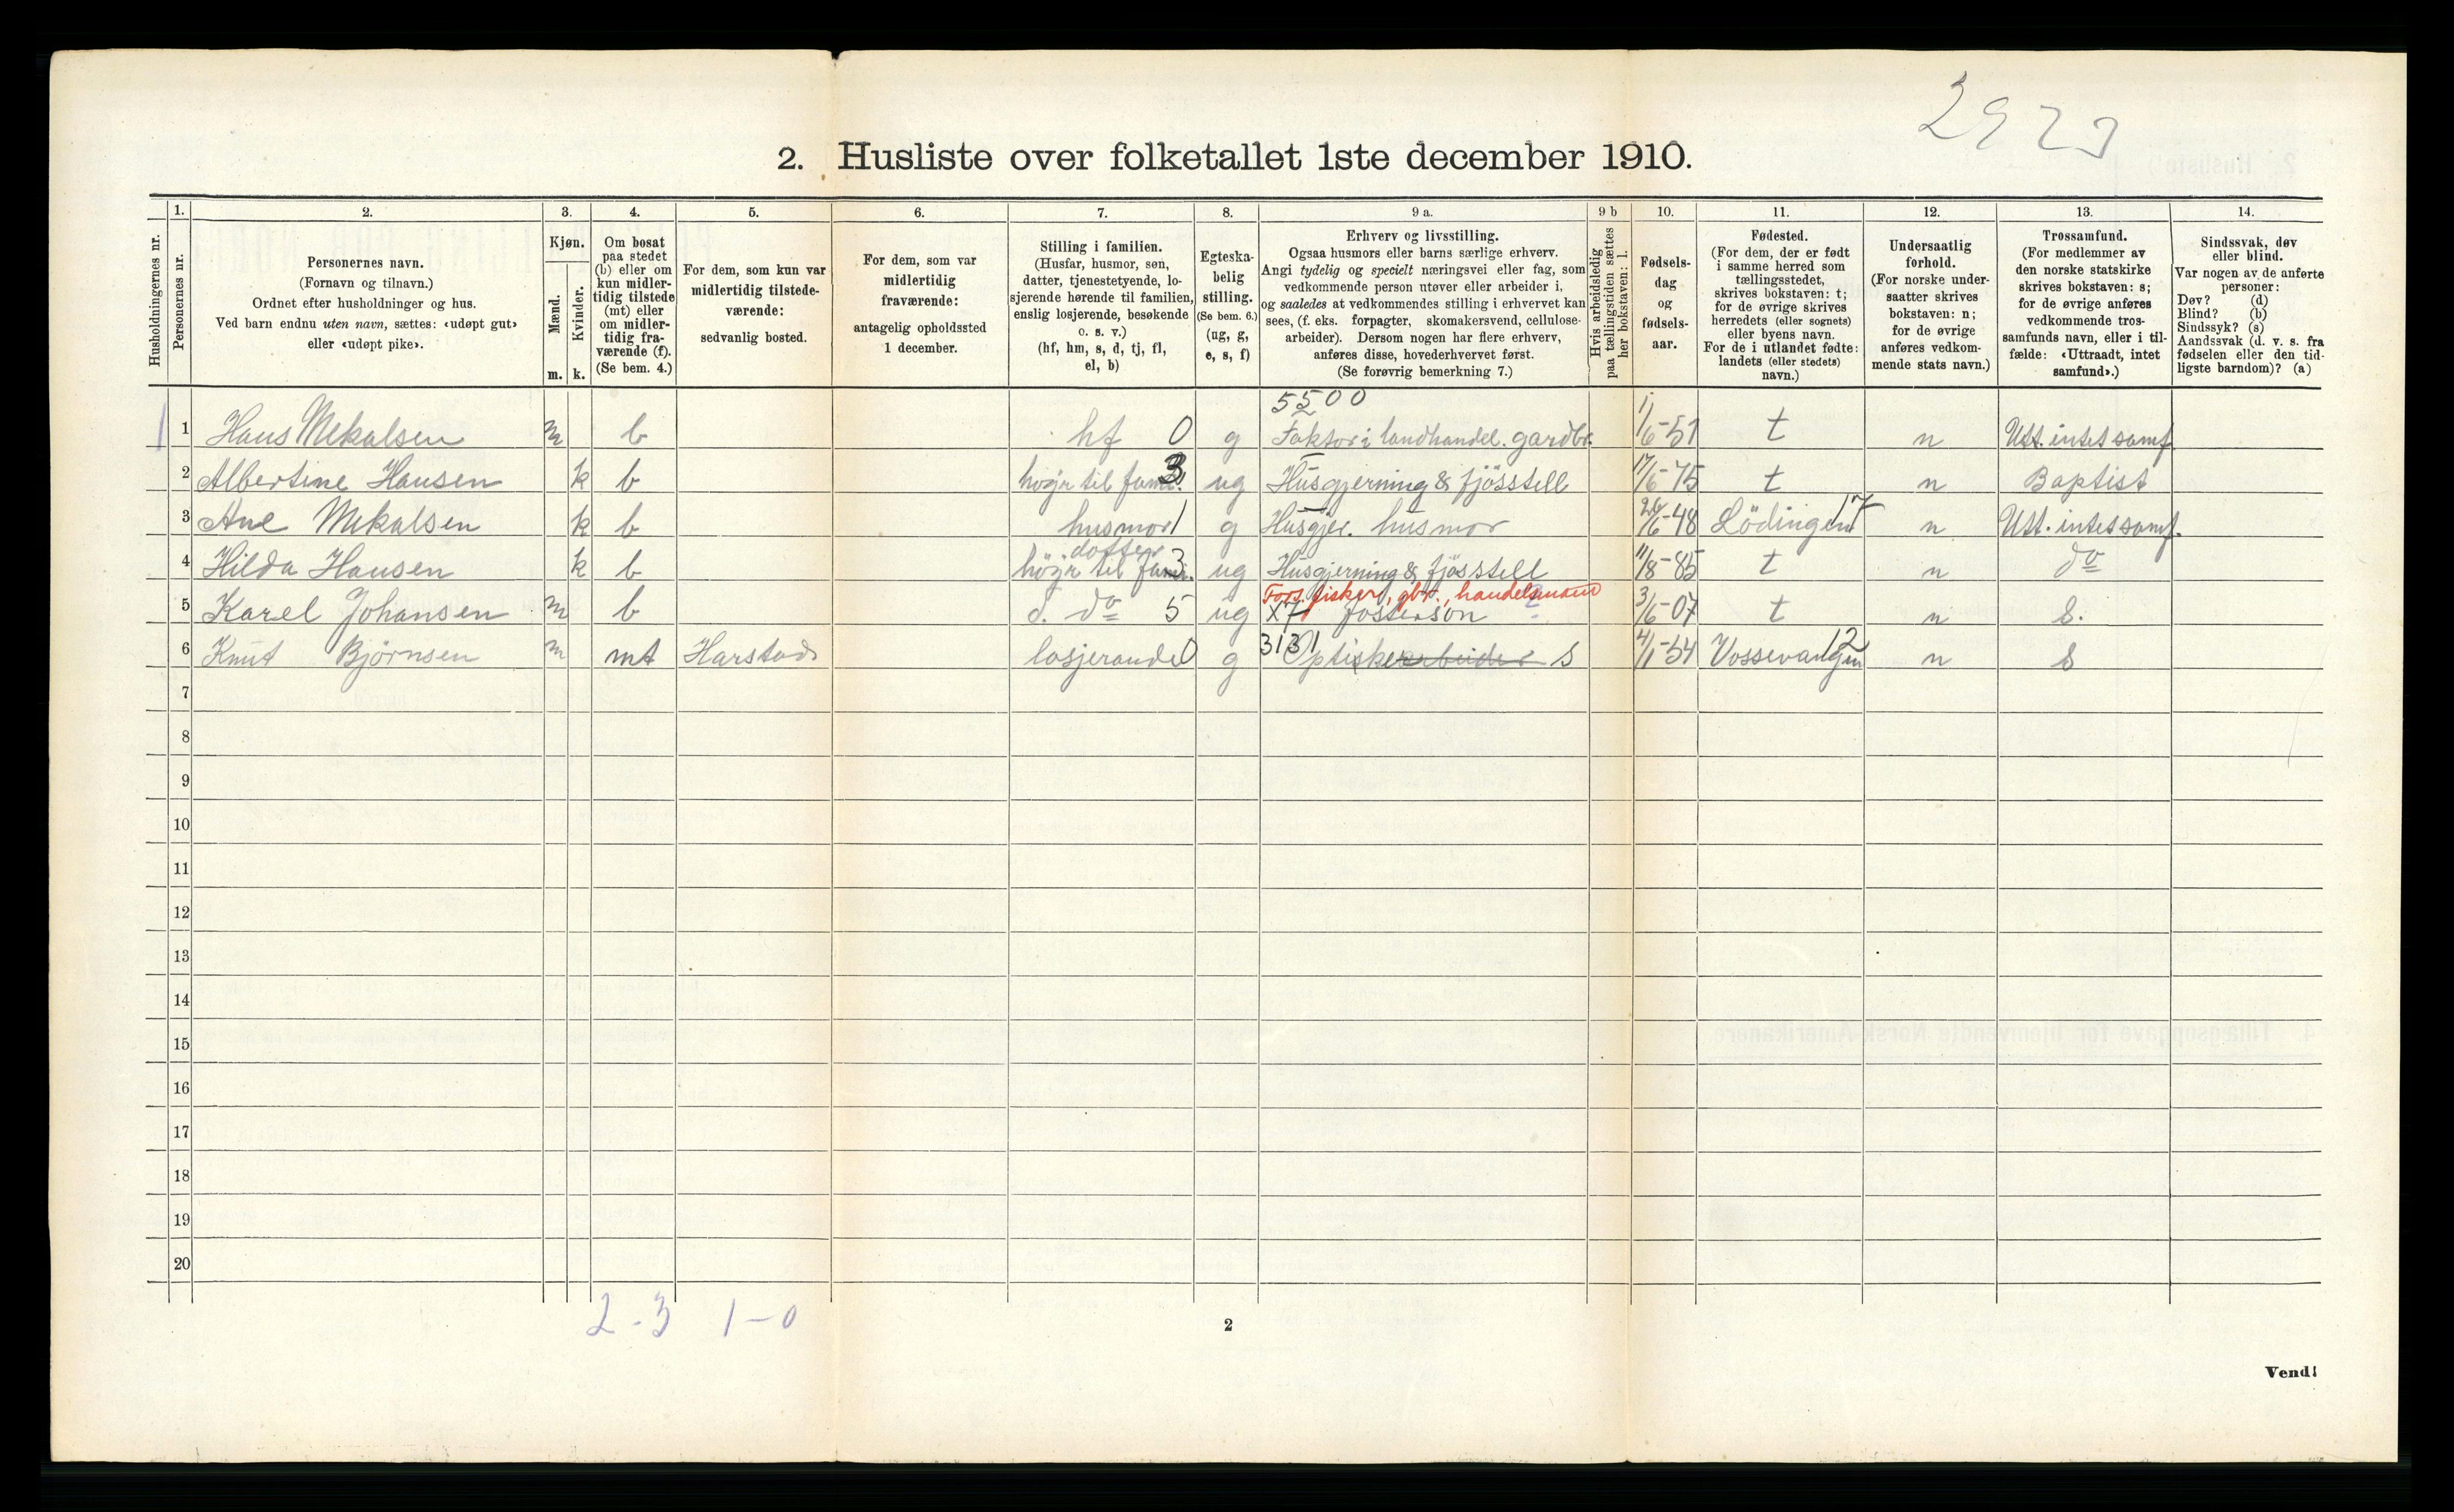 2923
2. Husliste over folketallet 1ste december 1910.
Husholdningernes nr.
1.
Personernes nr.
2.
Personernes navn.
(Fornavn og tilnavn.)
Ordnet efter husholdninger og hus.
Ved barn endnu uten navn, sættes: «udøpt gut»
eller «udøpt pike».
3.
Kjøn.
Mænd.
Kvinder.
m. k.
4.
Om bosat
paa stedet
(b) eller om
kun midler-
tidig tilstede
(mt) eller
om midler-
tidig fra-
værende (f).
(Se bem. 4.)
5.
For dem, som kun var
midlertidig tilstede-
værende:
sedvanlig bosted.
6.
For dem, som var
midlertidig
fraværende:
antagelig opholdssted
1 december.
7.
Stilling i familien.
(Husfar, husmor, søn,
datter, tjenestetyende, lo-
sjerende hørende til familien,
enslig losjerende, besøkende
o. s. v.)
(hf, hm, s, d, tj, fl,
el, b)
8.
Egteska-
belig
stilling.
(Se bem. 6.)
(ug, g,
e, s, f)
9 a.
Erhverv og livsstilling.
Ogsaa husmors eller barns særlige erhverv.
Angi tydelig og specielt næringsvei eller fag, som
vedkommende person utøver eller arbeider i,
og saaledes at vedkommendes stilling i erhvervet kan
sees, (f. eks. forpagter, skomakersvend, cellulose-
arbeider). Dersom nogen har flere erhverv,
anføres disse, hovederhvervet først.
(Se forøvrig bemerkning 7.)
9 b
Hvis arbeidsledig
paa tællingstiden sættes
her bokstaven: l.
10.
Fødsels-
dag
og
fødsels-
aar.
11.
Fødested.
(For dem, der er født
i samme herred som
tællingsstedet,
skrives bokstaven: t;
for de øvrige skrives
herredets (eller sognets)
eller byens navn.
For de i utlandet fødte:
landets (eller stedets)
navn.)
12.
Undersaatlig
forhold.
(For norske under-
saatter skrives
bokstaven: n;
for de øvrige
anføres vedkom-
mende stats navn.)
13.
Trossamfund.
(For medlemmer av
den norske statskirke
skrives bokstaven: s;
for de øvrige anføres
vedkommende tros-
samfunds navn, eller i til-
fælde: «Uttraadt, intet
samfund».)
14.
Sindssvak, døv
eller blind.
Var nogen av de anførte
personer:
Døv? (d)
Blind? (b)
Sindssyk? (s)
Aandssvak (d. v. s. fra
fødselen eller den tid-
ligste barndom)? (a)
5500
1 1 Hans Mekalsen m b hf 0 g Faktor i landhandel. gardbr. 1/6-51 t n Utt. intet samf.
2 Albertine Hansen k b högr til fami. 3 ug Husgjerning & fjösstell 17/6-75 t n Baptist
3 Ane Mekalsen k b husmor 1 g Husgjer. husmor 26/6-48 Lödingen 17 n Utt. intet samf.
dotter
4 Hilda Hansen k b högr til fami. 3 ug Husgjerning & fjösstell 11/8-85 t n do
Fors. fisker, gbr., handelsmand
5 Karel Johansen m b d. do 5 ug X7 fosterson 3/6-07 t n S.
3131 12
6 Knut Bjørnsen m mt Harstad losjerande 0 g Optiskerarbeider s 4/11-54 Vossevangen n S
7
8
9
10
11
12
13
14
15
16
17
18
19
20
2-3 1-0
2
Vend!